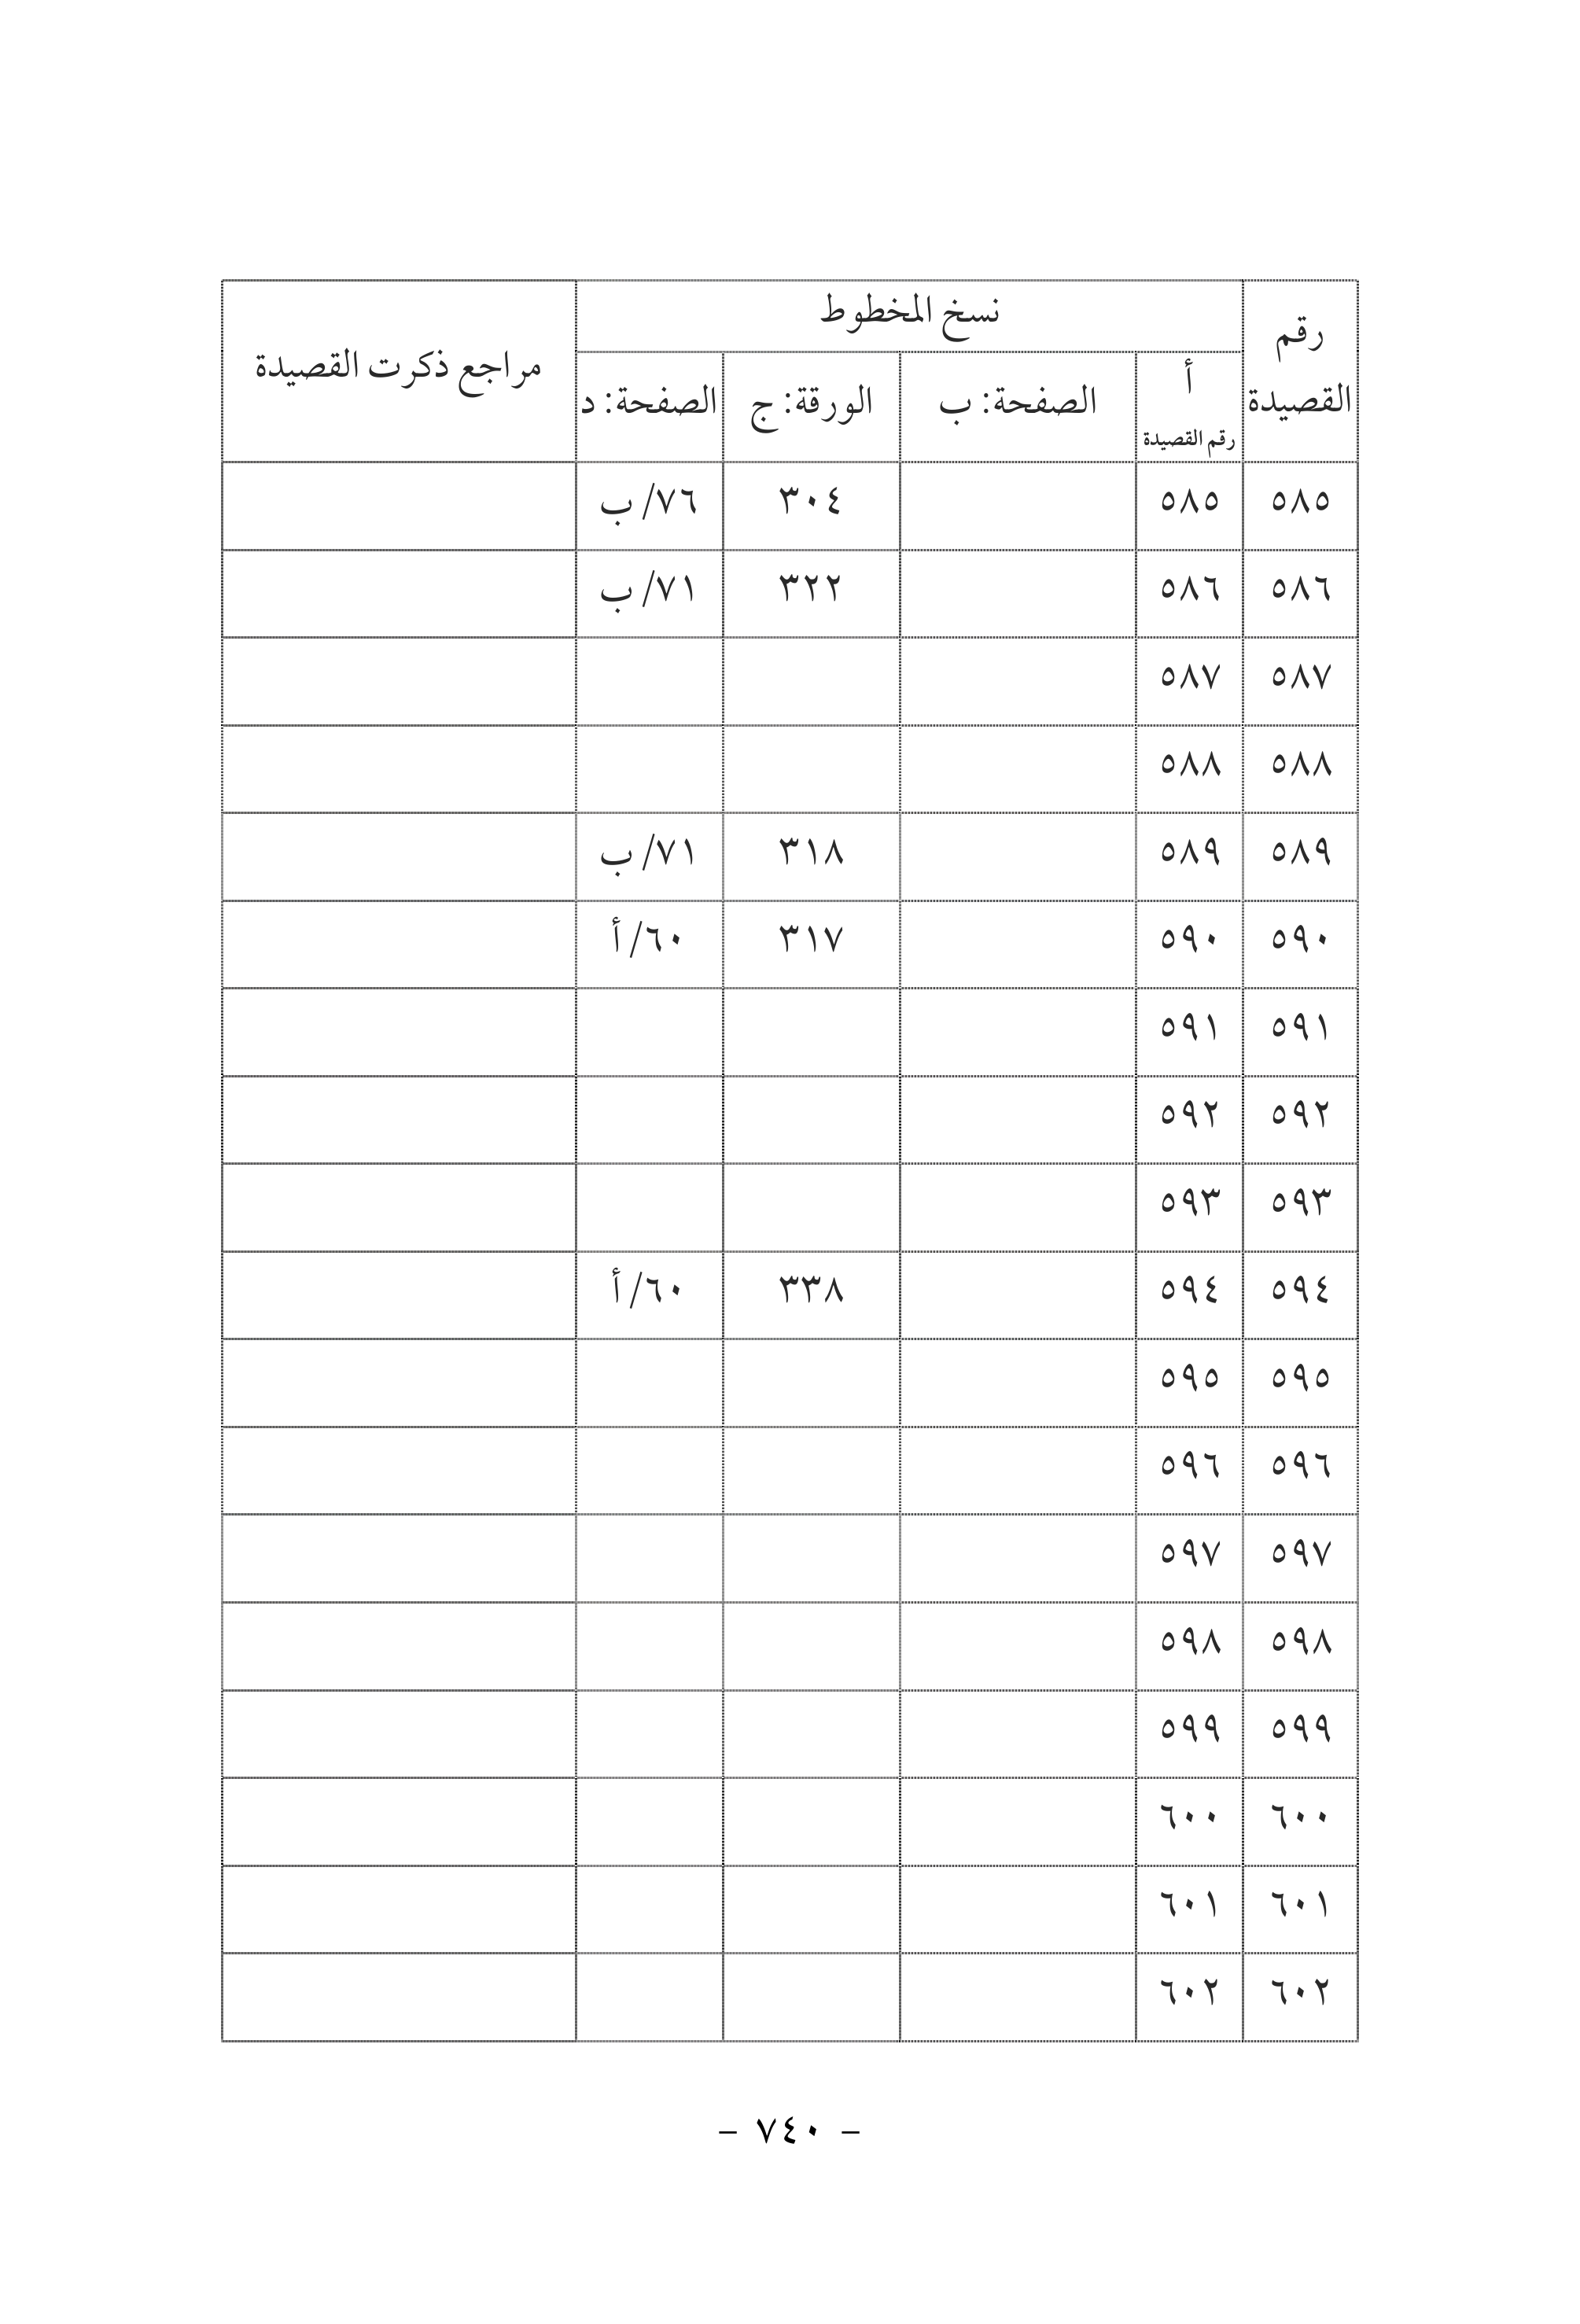 رقم القصيدة نسخ المخطوط مراجع ذكرت القصيدة
أ رقم القصيدة الصفحة: ب الورقة: ج الصفحة: د
٥٨٥ ٥٨٥ ٣٠٤ ٧٦/ ب
٥٨٦ ٥٨٦ ٣٢٢ ٧١/ ب
٥٨٧ ٥٨٧
٥٨٨ ٥٨٨
٥٨٩ ٥٨٩ ٣١٨ ٧١/ ب
٥٩٠ ٥٩٠ ٣١٧ ٦٠/ أ
٥٩١ ٥٩١
٥٩٢ ٥٩٢
٥٩٣ ٥٩٣
٥٩٤ ٥٩٤ ٣٣٨ ٦٠/ أ
٥٩٥ ٥٩٥
٥٩٦ ٥٩٦
٥٩٧ ٥٩٧
٥٩٨ ٥٩٨
٥٩٩ ٥٩٩
٦٠٠ ٦٠٠
٦٠١ ٦٠١
٦٠٢ ٦٠٢
– ٧٤٠ –